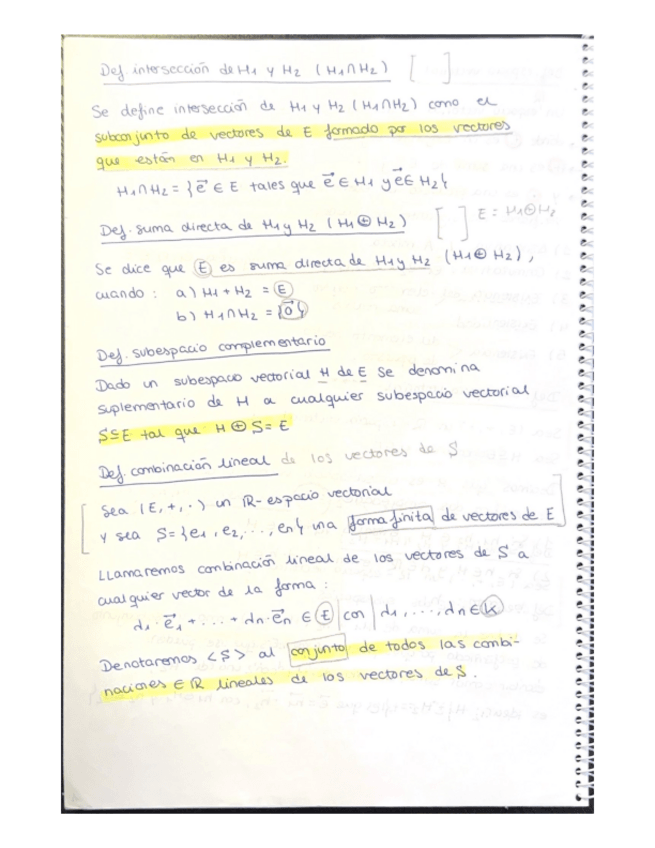 Def. intersección de H1 y H2 (H1∩H2) [ ]
Se define intersección de H1 y H2 (H1∩H2) como el
subconjunto de vectores de E formado por los vectores
que están en H1 y H2.
H1∩H2 = {e⃗ ∈ E tales que e⃗ ∈ H1 y e⃗ ∈ H2}
Def. suma directa de H1 y H2 (H1 ⊕ H2) [ ] E = H1⊕H2
Se dice que E es suma directa de H1 y H2 (H1⊕H2),
cuando: a) H1 + H2 = E
b) H1∩H2 = {0⃗}
Def. subespacio complementario
Dado un subespacio vectorial H de E se denomina
suplementario de H a cualquier subespacio vectorial
S⊆E tal que H ⊕ S = E
Def. combinación lineal de los vectores de S
Sea (E, +, ·) un R-espacio vectorial
y sea S = {e1, e2, ..., en} una forma finita de vectores de E
LLamaremos combinación lineal de los vectores de S a
cualquier vector de la forma:
d1 · e⃗1 + ... + dn · e⃗n ∈ E con d1, ..., dn ∈ K
Denotaremos <S> al conjunto de todos las combi-
naciones ∈ R lineales de los vectores de S.